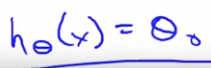 h_θ(x) = θ₀